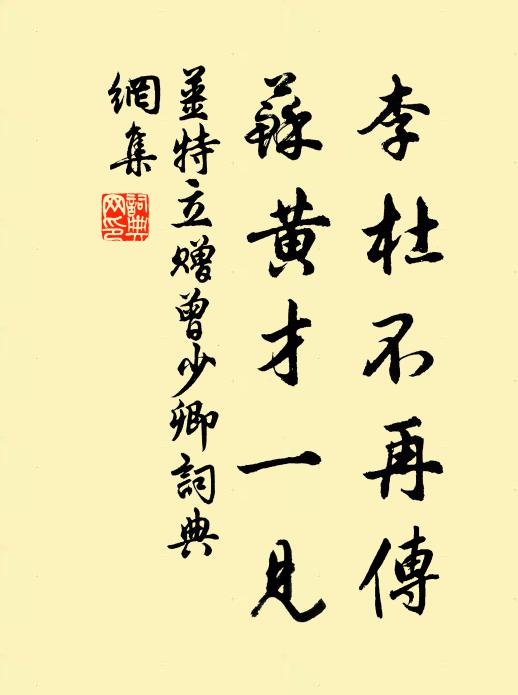 李杜不再傳
蘇黃才一見
姜特立贈曾少卿詞典
網集
詞典
网印